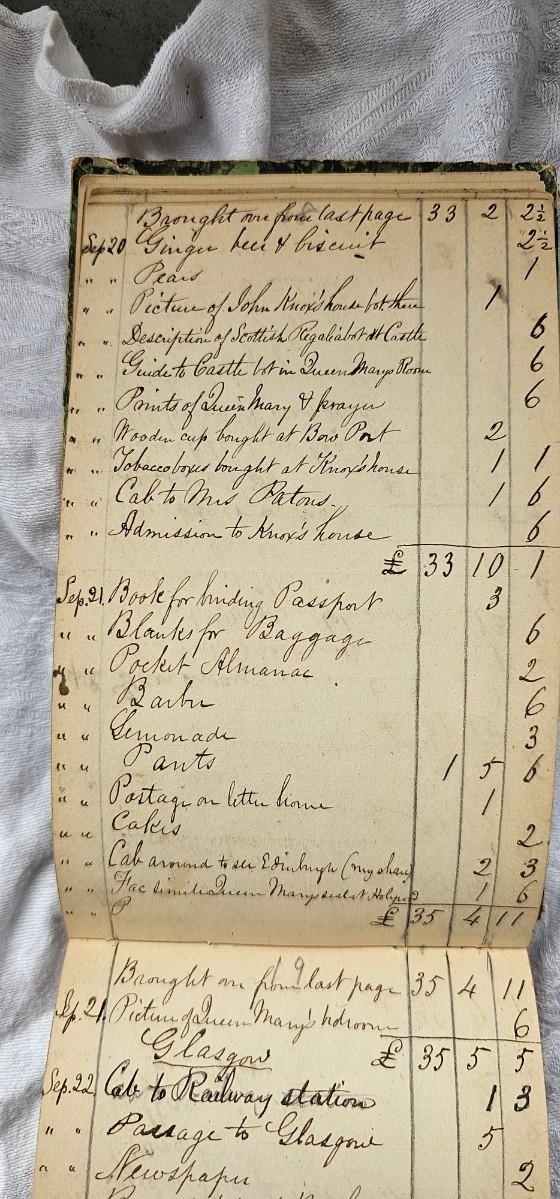 Brought over from last page 33 2 2½
Sep 20 Ginger beer & biscuit 2½
" " Pears 1
" " Picture of John Knox's house bot there 1
" " Description of Scottish Regalia bot at Castle 6
" " Guide to Castle bot in Queen Marys Room 6
" " Prints of Queen Mary & prayer 6
" " Wooden cup bought at Bow Port 2
" " Tobacco boxes bought at Knox's house 1 1
" " Cab to Mrs Patons. 1 6
" " Admission to Knox's house 6
£ 33 10 1
Sep. 21. Book for binding Passport 3
" " Blanks for Baggage 6
" " Pocket Almanac 2
" " Barber 6
" " Lemonade 3
" " Pants 1 5 6
" " Postage on letter home 1
" " Cakes 2
" " Cab around to see Edinburgh (my share) 2 3
" " Fac simile Queen Marys seal at Holyrood 1 6
" " P £ 35 4 11
19
Brought over from last page 35 4 11
Sep. 21. Picture of Queen Mary's bedroom 6
Glasgow £ 35 5 5
Sep. 22 Cab to Railway station 1 3
" " Passage to Glasgow 5
" " Newspaper 2